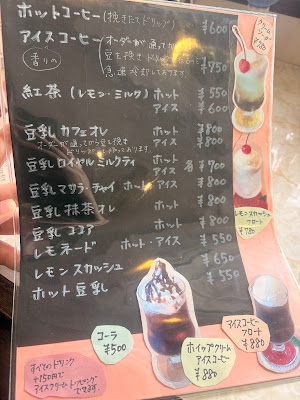 ホットコーヒー(挽きたてドリップ) ¥600
アイスコーヒー オーダーが通ってから
香りの 豆を挽きドリップ
急速冷却しております ¥750
紅茶(レモン・ミルク) ホット ¥550
アイス ¥600
豆乳カフェオレ ホット ¥800
オーダーが通ってから豆を挽き アイス ¥800
ドリップしております
豆乳ロイヤルミルクティ ホット アイス 各¥700
豆乳マサラ・チャイ ホット・アイス ¥800
豆乳抹茶オレ ホット ¥800
豆乳ココア ホット ¥800
レモネード ホット・アイス ¥550
レモンスカッシュ ¥650
ホット豆乳 ¥550
クリーム
ソーダ
¥780
レモンスカッシュ
フロート
¥780
コーラ
¥500
ホイップクリーム
アイスコーヒー
¥880
アイスコーヒー
フロート
¥880
すべてのドリンク
+150円で
アイスクリームトッピング
できます。